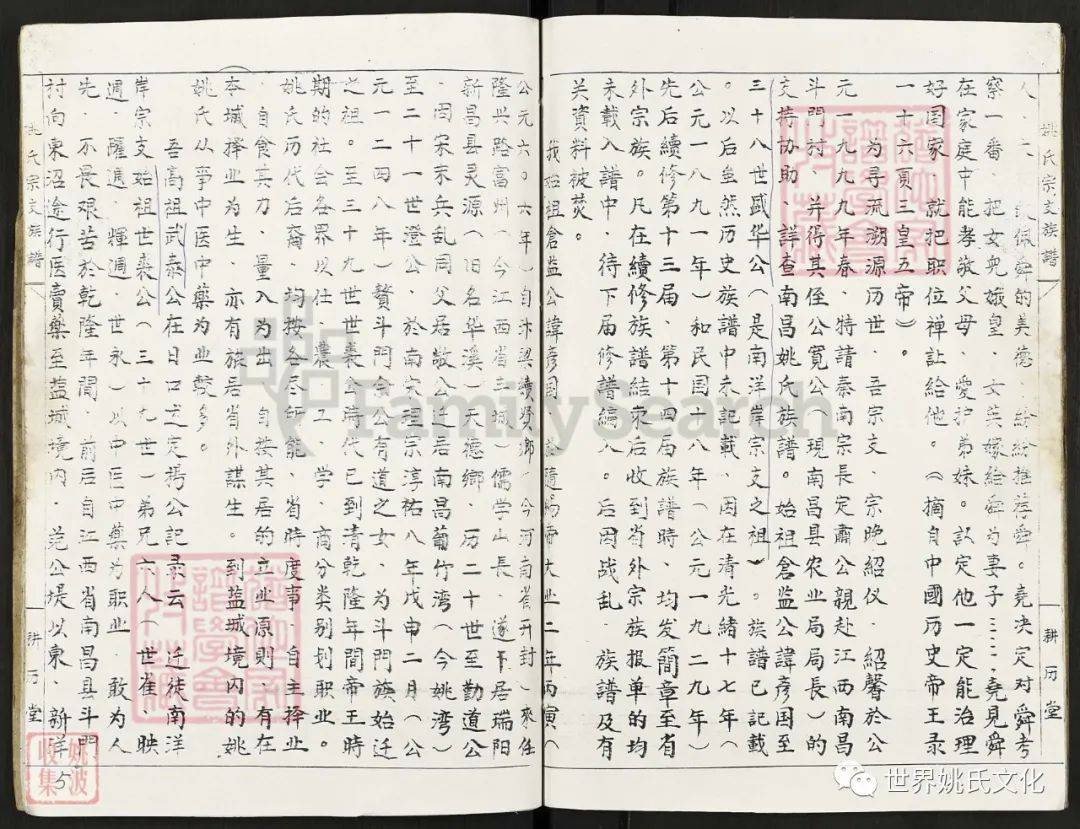 姚氏宗支族譜
耕历堂
佩舜的美德 纷纷推荐舜。堯决定对舜考
察一番．把女兒娥皇．女英嫁給舜为妻子……堯見舜
在家庭中能孝敬父母．愛护弟妹。認定他一定能治理
好国家．就把职位禅让給他。（摘自中國历史帝王录
一十六頁三皇五帝）。
为寻流溯源历世．吾宗支．宗晚绍仪．紹馨於公
元一九九九年春．特請秦南宗長定肅公親赴江西南昌
斗門村、并得其侄公寬公（現南昌县农业局局長）的
支持协助、詳查南昌姚氏族譜。始祖倉监公諱彦国至
三十八世盛华公（是南洋岸宗支之祖）。族譜已記載
。以后虽然历史族譜中未記載．因在清光緒十七年（
公元一八九一年）和民国十八年（公元一九二九年）
先后續修第十三届．第十四届族譜時．均发簡章至省
外宗族。凡在續修族譜結束后收到省外宗族报单的均
未載入譜中．待下届修譜編入。后因战乱．族譜及有
关資料被焚。
我始祖倉监公諱彦国 隨煬帝大业二年丙寅（
公元六〇六年）自汴梁續贤鄉（今河南省开封）來任
隆兴路富州（今江西省丰城）儒学山長．遂下居瑞阳
新昌县灵源（旧名华溪）天德鄉．历二十世至勤道公
．因宋末兵乱同父居敬公迁居南昌葡竹湾（今姚湾）
至二十一世澄公．於南宋理宗淳祐八年戊申二月（公
元一二四八年）贅斗門 公有道之女、为斗門族始迁
之祖。至三十九世世裘公時代已到清乾隆年間帝王時
期的社会各界以仕．農．工．学．商分类别划职业。
姚氏历代后裔．均按各尽所能、省時度事．自主择业
．自食其力．量入为出．自按其居的立业源則、有在
本城择业为生．亦有旅居省外謀生。到盐城境內的姚
姚氏从事中医中藥为业較多。
吾高祖武泰公在日口述定揚公記录云．迁徒南洋
岸宗支始祖世裘公（三十九世）弟兄六人（世雀、映
週．躍週．輝週．世永）以中医中藥为职业．敢为人
先．不畏艰苦於乾隆年間．前后自江西省南昌县斗門
村向東沿途行医賣藥至盐城境內．范公堤以東．新洋
氏宗支族譜
耕历堂
5
姚波
收集
FamilySearch
世界姚氏文化